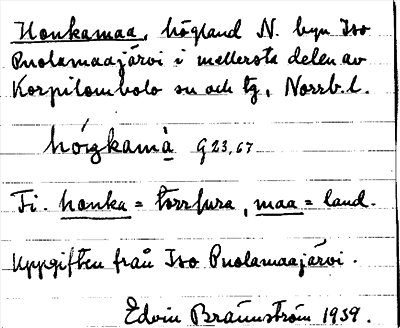 Honkamaa, högland N. byn Iso
Puolamaajärvi i mellersta delen av
Korpilombolo sn och tg, Norrb. l.
hóŋkamà G 23, 67
Fi. honka = torrfura, maa = land.
Uppgiften från Iso Puolamaajärvi.
Edvin Brännström 1939.